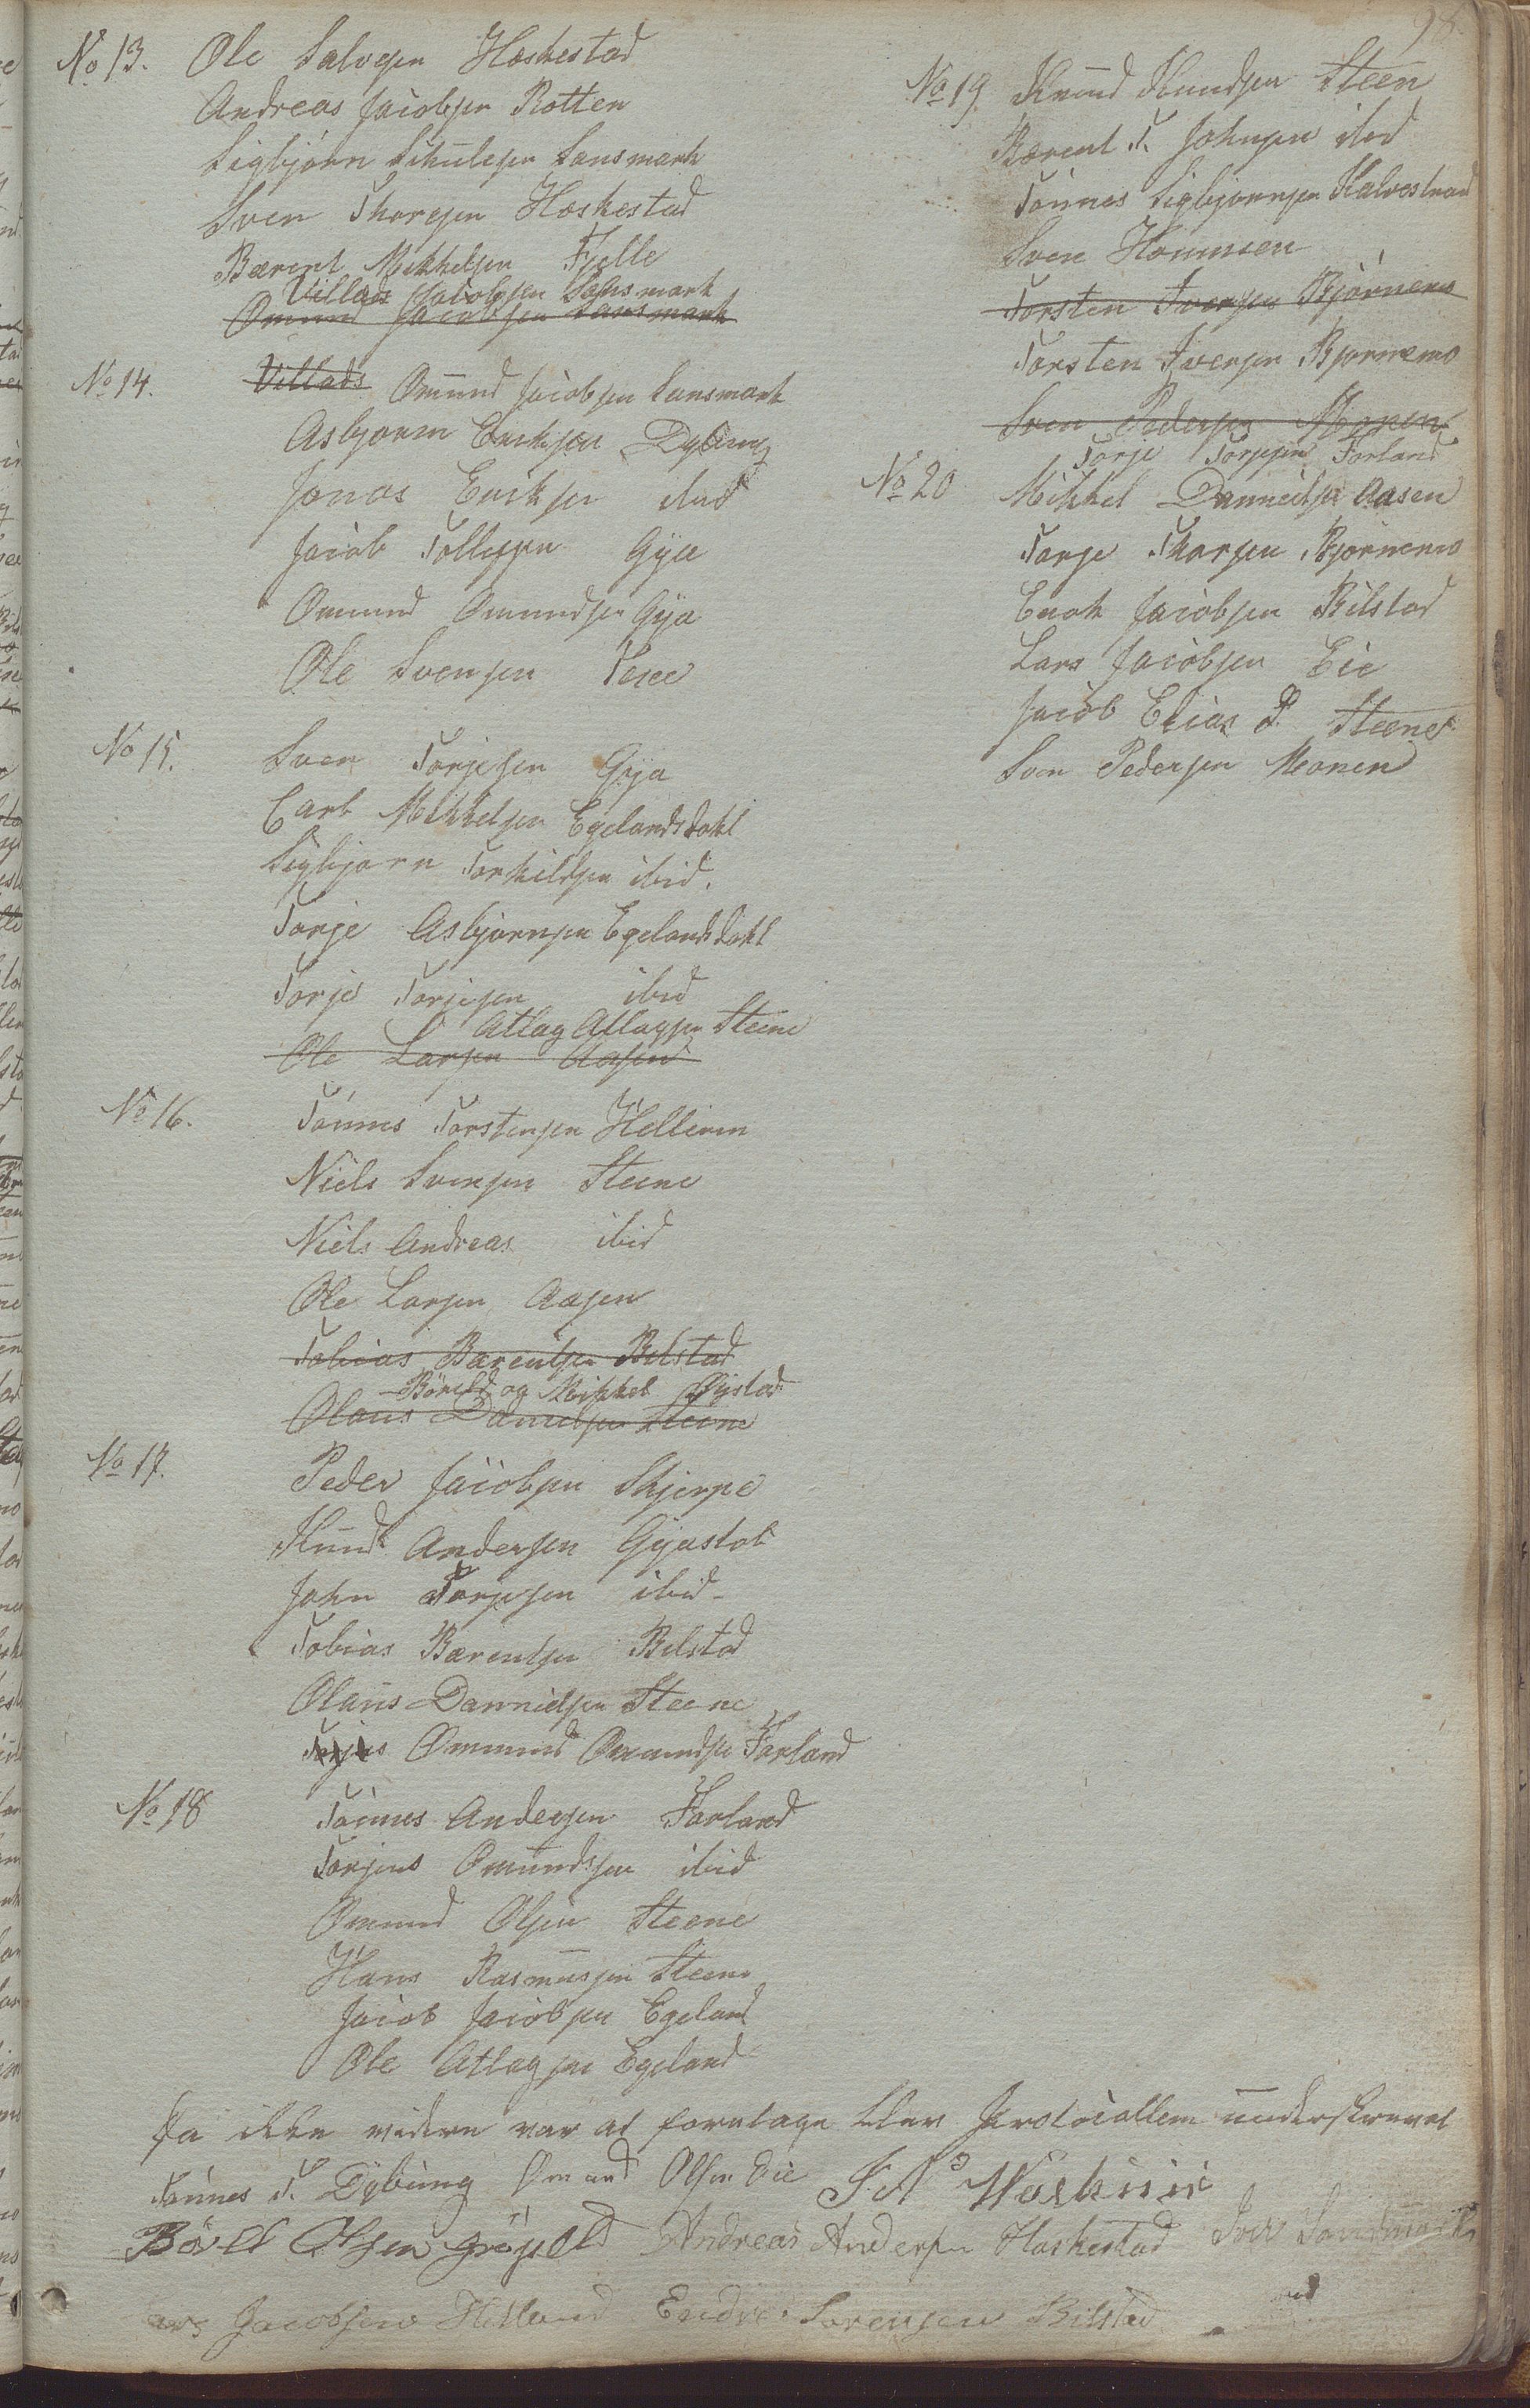 98
No 13. Ole Salvesen Hoskestad
Andreas Jacobsen Rotten
Sigbjørn Schulesen Sansmark
Sven Thoresen Hoskestad
Bærent Mikkelsen Fjelle
Villads Jacobsen Sansmark
Omund Jacobsen Sansmark
No 14. Villads Omund Jacobsen Sansmark
Asbjørn Erichsen Dybing
Jonas Erichsen ibid
Jacob Tollefsen Gya
Omund Omundsen Gya
Ole Svensen
No 15. Sven Torjesen Gya
Carl Mikkelsen Egelandsdahl
Sigbjørn Torkildsen ibid.
Torje Asbjørnsen Egelandsdahl
Torje Torjesen ibid
Atlag Atlagsen Steene
Ole Larsen Aasen
No 16. Tønnes Torstensen Helleren
Niels Svensen Steene
Niels Andreas ibid
Ole Larsen Aasen
Tobias Bærentsen Bilstad
Børeld og Mikkel
Olaus Danielsen Steene
No 17. Peder Jacobsen Skjerpe
Knud Andersen Gyastøl
John Torjesen ibid
Tobias Bærentsen Bilstad
Olaus Dannielsen Steene
Omund Omundsen Førland
No 18 Tønnes Andersen Førland
Torjus Omundsen ibid
Omund Olsen Steene
Hans Rasmussen Steene
Jacob Jacobsen Egeland
Ole Atlagsen Egeland
No 19. Knud Knudsen Steen
Bærent T. Johnsen ibid
Tønnes Sigbjørnsen Kalvestrad
Sven Hommsen
Torsten Iversen Bjørnemo
Torsten Iversen Bjørnemo
Sven Pedersen Monen
Torje Torjesen Førland
No 20 Mikkel Dannielsen Aasen
Torje Thorsen Bjørnemo
Enok Jacobsen Bilstad
Lars Jacobsen Eie
Jacob Elias P. Steene
Sven Pedersen Monen
Da ikke videre var at foretage blev Protocollen underskrevet
Tønnes T. Dybing Omund Olsen Eie
Olsen Andreas Andersen Hoskestad
Jacobsen Helland Endre Sørensen Bilstad